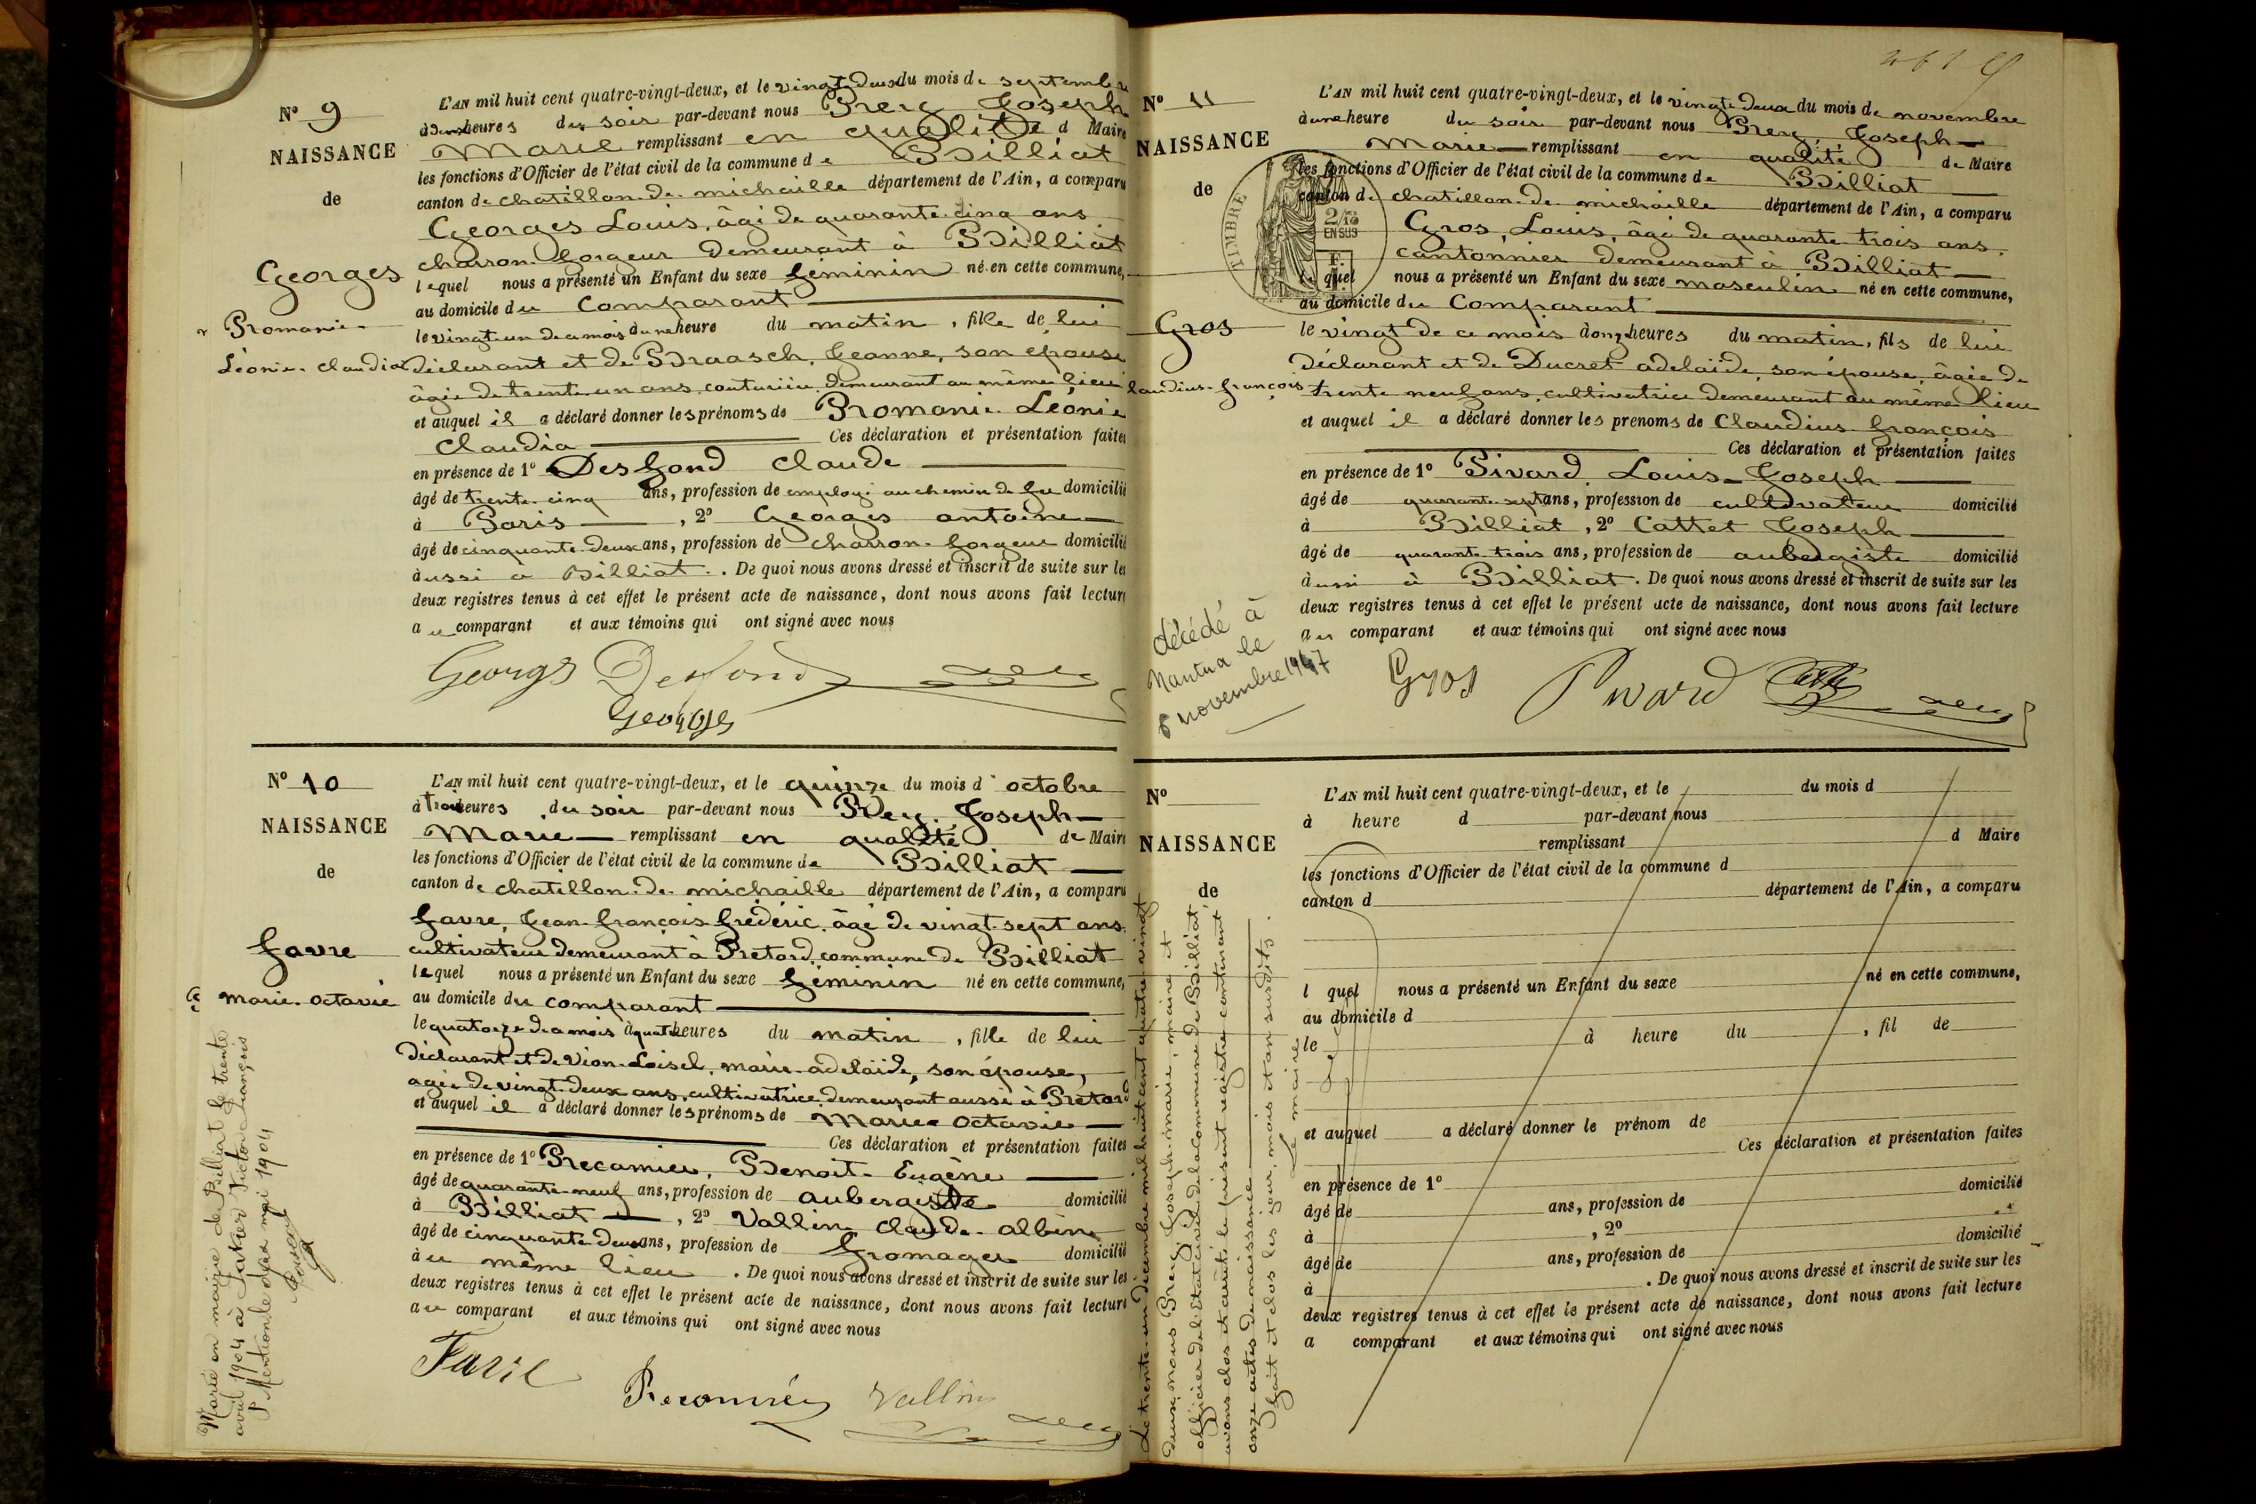 N° 9
NAISSANCE
de
Georges
Romanie
Léonie Claudia
L'AN mil huit cent quatre-vingt-deux, et le vingt-deux du mois de septembre
à deux heures du soir par-devant nous Prery Joseph
Marie remplissant en qualité d Maire
les fonctions d'Officier de l'état civil de la commune de Billiat
canton de chatillon-de-michaille département de l'Ain, a comparu
Georges Louis, âgé de quarante-cinq ans
charron-forgeur demeurant à Billiat
lequel nous a présenté un Enfant du sexe féminin né en cette commune,
au domicile du Comparant
le vingt-un de ce mois à une heure du matin, fille de lui
déclarant et de Braasch, Jeanne, son épouse
âgée de trente-un ans, couturière demeurant au même lieu
et auquel il a déclaré donner les prénoms de Romanie Léonie
Claudia Ces déclaration et présentation faites
en présence de 1° Desfond Claude
âgé de trente-cinq ans, profession de employé au chemin de fer domicilié
à Paris, 2° Georges antoine
âgé de cinquante-deux ans, profession de charron-forgeur domicilié
aussi à Billiat. De quoi nous avons dressé et inscrit de suite sur les
deux registres tenus à cet effet le présent acte de naissance, dont nous avons fait lecture
au comparant et aux témoins qui ont signé avec nous
Georges Desfond
Georges
N° 10
NAISSANCE
de
Favre
marie-octavie
Marié en mairie de Billiat le trente
avril 1904 à
Mention le deux mai 1904
L'AN mil huit cent quatre-vingt-deux, et le quinze du mois d'octobre
à trois heures du soir par-devant nous Prery, Joseph
Marie remplissant en qualité de Maire
les fonctions d'Officier de l'état civil de la commune de Billiat
canton de chatillon-de-michaille département de l'Ain, a comparu
Favre, Jean-françois-frédéric, âgé de vingt-sept ans
cultivateur demeurant à Pretard, commune de Billiat
lequel nous a présenté un Enfant du sexe féminin né en cette commune,
au domicile du comparant
le quatorze de ce mois à quatre heures du matin, fille de lui
déclarant et de Vion-Loisel, marie-adelaïde, son épouse,
agée de vingt-deux ans, cultivatrice demeurant aussi à Pretard
et auquel il a déclaré donner les prénoms de Marie Octavie
Ces déclaration et présentation faites
en présence de 1° Recamier, Benoit-Eugène
âgé de quarante-neuf ans, profession de aubergiste domicilié
à Billiat, 2° Vallin claude-albin
âgé de cinquante-deux ans, profession de fromager domicilié
au même lieu. De quoi nous avons dressé et inscrit de suite sur les
deux registres tenus à cet effet le présent acte de naissance, dont nous avons fait lecture
au comparant et aux témoins qui ont signé avec nous
Favre
Recamier Vallin
N° 11
NAISSANCE
de
TIMBRE
EN SUS
Gros
claudius-françois
décédé à
Nantua le
novembre
L'AN mil huit cent quatre-vingt-deux, et le vingt-deux du mois de novembre
à une heure du soir par-devant nous Prery, Joseph
Marie remplissant en qualité de Maire
les fonctions d'Officier de l'état civil de la commune de Billiat
canton de chatillon-de-michaille département de l'Ain, a comparu
Gros, Louis, âgé de quarante-trois ans,
cantonnier demeurant à Billiat
lequel nous a présenté un Enfant du sexe masculin né en cette commune,
au domicile du Comparant
le vingt de ce mois à onze heures du matin, fils de lui
déclarant et de Ducret adelaide, son épouse, âgée de
trente-neuf ans, cultivatrice demeurant au même lieu
et auquel il a déclaré donner les prénoms de Claudius françois
Ces déclaration et présentation faites
en présence de 1° Pivard, Louis-Joseph
âgé de quarante-sept ans, profession de cultivateur domicilié
à Billiat, 2° Cattet Joseph
âgé de quarante-trois ans, profession de aubergiste domicilié
aussi à Billiat. De quoi nous avons dressé et inscrit de suite sur les
deux registres tenus à cet effet le présent acte de naissance, dont nous avons fait lecture
au comparant et aux témoins qui ont signé avec nous
Gros Pivard
N°
NAISSANCE
de
Le trente-un décembre mil huit cent quatre-vingt
deux, nous Prery, Joseph-marie, maire et
officier de l'état civil de la commune de Billiat,
avons clos et arrêté le présent registre contenant
onze actes de naissance
fait et clos les jour, mois et an susdits.
Le maire
L'AN mil huit cent quatre-vingt-deux, et le du mois d
à heure d par-devant nous
remplissant d Maire
les fonctions d'Officier de l'état civil de la commune d
canton d département de l'Ain, a comparu
l quel nous a présenté un Enfant du sexe né en cette commune,
au domicile d
le à heure du, fil de
et auquel a déclaré donner le prénom de
Ces déclaration et présentation faites
en présence de 1°
âgé de ans, profession de domicilié
à, 2°
âgé de ans, profession de domicilié
à. De quoi nous avons dressé et inscrit de suite sur les
deux registres tenus à cet effet le présent acte de naissance, dont nous avons fait lecture
a comparant et aux témoins qui ont signé avec nous